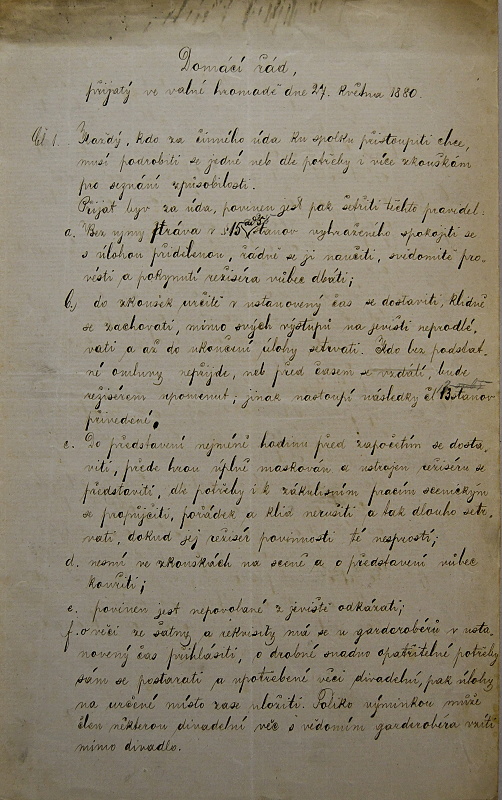 Domácí řád,
přijatý ve valné hromadě dne 27. května 1880.
Čl. 1. Každý, kdo za činného úda ku spolku přistoupiti chce,
musí podrobiti se jedné neb dle potřeby i více zkouškám
pro seznání způsobilosti.
Přijat byv za úda, povinen jest pak šetřiti těchto pravidel:
a. Bez ujmy práva v § 15 stanov vyhraženého spokojiti se
s úlohou přidělenou, řádně se ji naučiti, svědomitě pro-
vésti a pokynutí režiséra vůbec dbáti;
b.) do zkoušek určitě v ustanovený čas se dostaviti, klidně
se zachovati, mimo svých výstupů na jevišti neprodlé-
vati a až do ukončení úlohy setrvati. Kdo bez podstat-
né omluvy nepřijde, neb před časem se vzdálí, bude
režisérem napomenut; jinak nastoupí následky čl 13 stanov
přivedené.
c. Do představení nejméně hodinu před započetím se dosta-
viti, přede hrou úplně maskován a ustrojen režiséru se
představiti, dle potřeby i k zákulisním pracím scenickým
se propůjčiti, pořádek a klid nerušiti a tak dlouho setr-
vati, dokud jej režisér povinnosti té nesprostí;
d. nesmí ve zkouškách na sceně a o představení vůbec
kouřiti;
e. povinen jest nepovolané z jeviště odkázati;
f. o věci ze šatny a rekvisity má se u garderobérů v usta-
novený čas přihlásiti, o drobné snadno opatřitelné potřeby
sám se postarati a upotřebené věci divadelní, pak úlohy
na určené místo zase uložiti. Toliko výminkou může
člen některou divadelní věc s vědomím garderobéra vzíti
mimo divadlo.